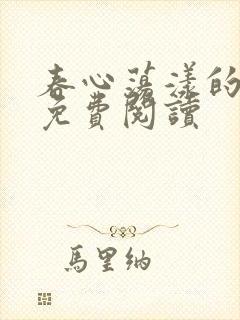 春心蕩漾的
免費閱讀
馬里納